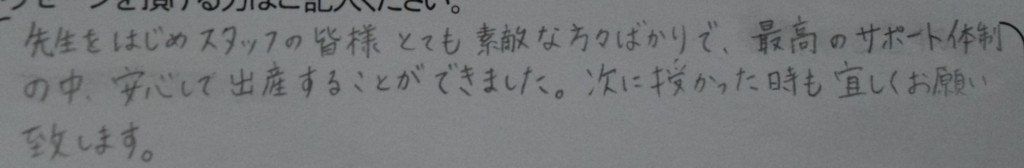 セージを頂ける方はご記入ください。
先生をはじめスタッフの皆様とても素敵な方々ばかりで、最高のサポート体制
の中、安心して出産することができました。次に授かった時も宜しくお願い
致します。